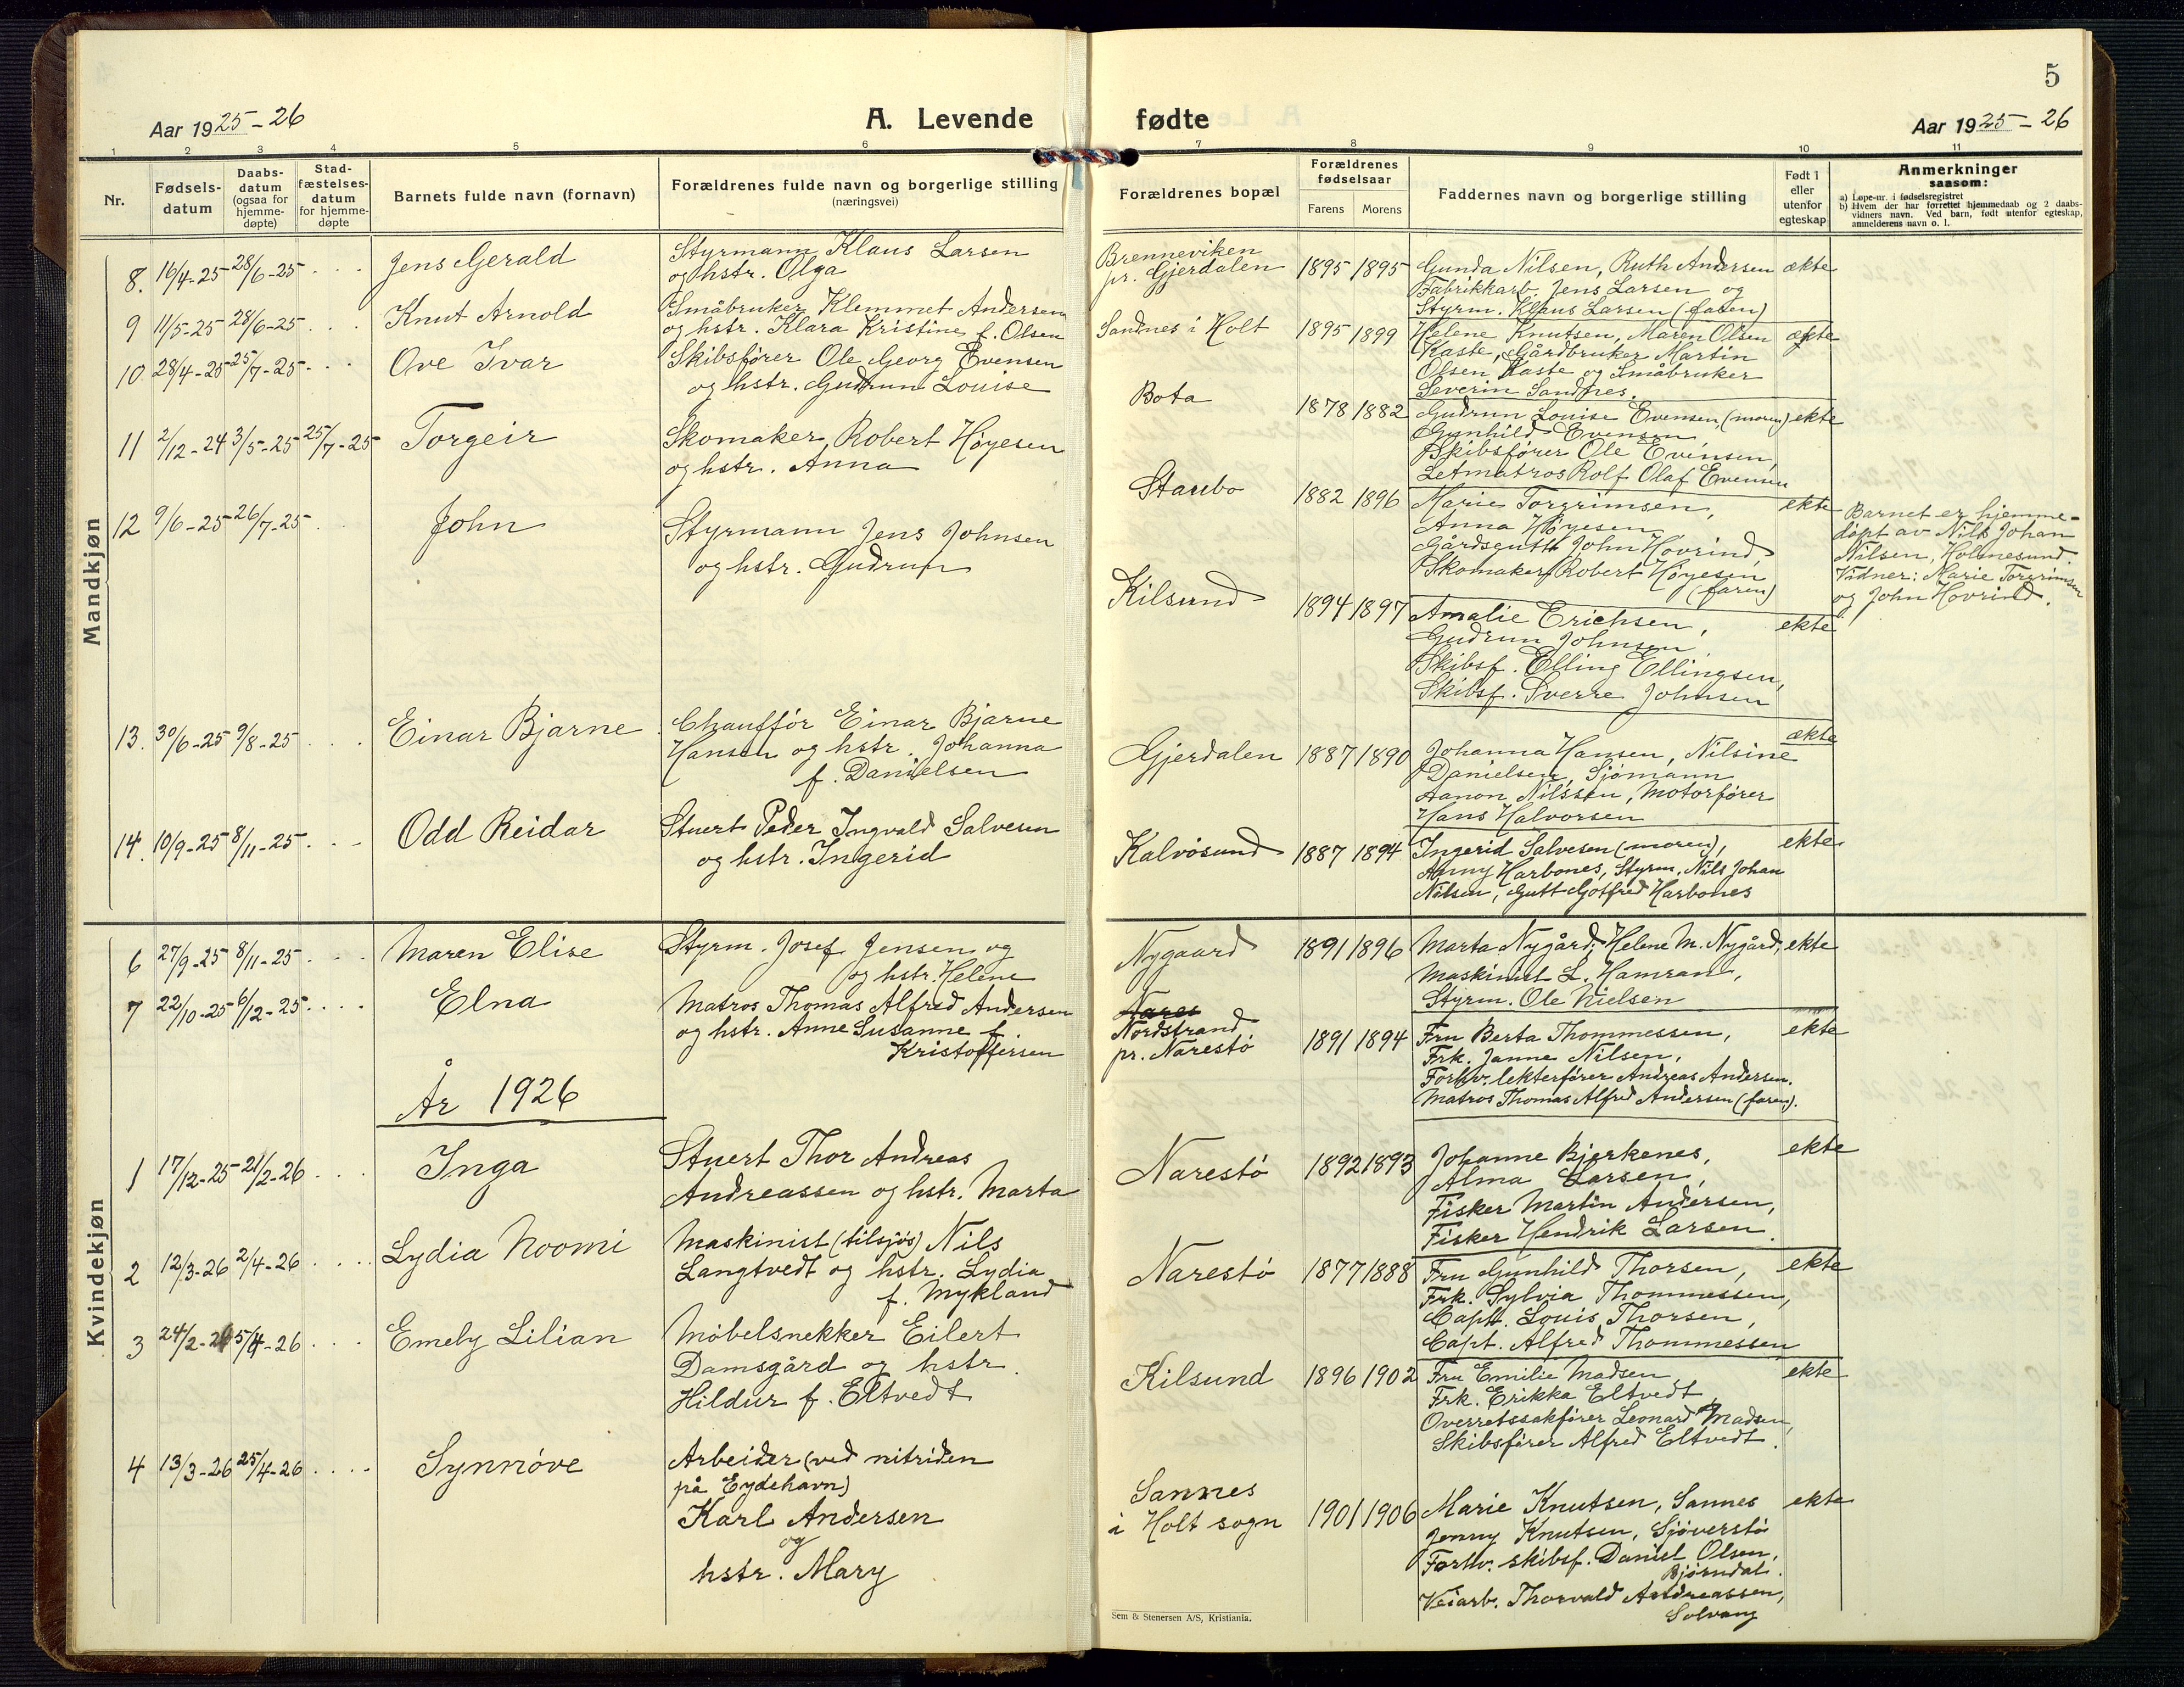 5
Aar 1925-26
A. Levende
fødte
Aar 1925-26
1 2 3 4 5 6 7 8 9 10 11
Nr.
Fødsels-
datum
Daabs-
datum
(ogsaa for
hjemme-
døpte)
Stad-
fæstelses-
datum
for hjemme-
døpte
Barnets fulde navn (fornavn)
Forældrenes fulde navn og borgerlige stilling
(næringsvei)
Forældrenes bopæl
Forældrenes
fødselsaar
Farens Morens
Faddernes navn og borgerlige stilling
Født i
eller
utenfor
egteskap
Anmerkninger
saasom:
a) Løpe-nr. i fødselsregistret
b) Hvem der har forrettet hjemmedaab og 2 daabs-
vidners navn. Ved barn, født utenfor egteskap,
anmelderens navn o. l.
Mandkjøn
8. 16/4-25 28/6-25 . . . Jens Gerald
Styrmann Klaus Larsen
og hstr. Olga
Brenneviken
pr. Gjerdalen 1895 1895
Gunda Nilsen, Ruth Andersen ækte
Fabrikkarb. Jens Larsen og
Styrm. Klaus Larsen (faren)
9 11/5-25 28/6-25 . . . Knut Arnold
Småbruker Klemmet Andersen
og hstr. Klara Kristine f. Olsen
Sandnes i Holt 1895 1899
Helene Knutsen, Maren Olsen ækte
Kaste, Gårdbruker Martin
Olsen Kaste og Småbruker
Severin Sandnes.
10 28/4-25 25/7-25 . . . Ove Ivar
Skibsfører Ole Georg Evensen
og hstr. Gudrun Louise
Bota 1878 1882
Gudrun Louise Evensen (moren) ekte
Gunhild Evensen,
Skibsfører Ole Evensen,
Letmatros Rolf Olaf Evensen
11 2/12-24 3/5-25 25/7-25 Torgeir
Skomaker Robert Høyesen
og hstr. Anna
Staubo 1882 1896
Marie Torgrimsen, ekte
Anna Høyesen
Gårdsgutt John Hovrind,
Skomaker Robert Høyesen
(faren)
Barnet er hjemme-
døpt av Nils Johan
Nilsen, Holmesund.
Vidner: Marie Torgrimsen
og John Hovrind.
12 9/6-25 26/7-25 . John
Styrmann Jens Johnsen
og hstr. Gudrun
Kilsund 1894 1897
Amalie Erichsen, ekte
Gudrun Johnsen,
Skibsf. Elling Ellingsen,
Skibsf. Sverre Johnsen
13. 30/6-25 9/8-25 . . . Einar Bjarne
Chauffør Einar Bjarne
Hansen og hstr. Johanna
f. Danielsen
Gjerdalen 1887 1890
ækte
Johanna Hansen, Nilsine
Danielsen, Sjømann
Aanon Nilssen, Motorfører
Hans Halvorsen
14. 10/9-25 8/11-25 . . . Odd Reidar
Stuert Peder Ingvald Salvesen
og hstr. Ingerid
Kalvøsund 1887 1894
Ingerid Salvesen (moren), ekte
Anny Harbones, Styrm. Nils Johan
Nilsen, Gutt Gotfred Harbones
Kvindekjøn
6 27/9-25 8/11-25 . . . Maren Elise
Styrm. Josef Jensen og
og hstr. Helene
Nygaard 1891 1896
Marta Nygård, Helene M. Nygård, ekte
Maskinist L. Hamran,
Styrm. Ole Nielsen
7 22/10-25 6/12-25 . . . . Elna
Matros Thomas Alfred Andersen
og hstr. Anne Susanne f.
Kristoffersen
Nares
Nordstrand
pr. Narestø 1891 1894
Fru Berta Thommessen, ekte
Frk. Janne Nilsen,
Forhv. lekterfører Andreas Andersen.
Matros Thomas Alfred Andersen (faren).
År 1926
1 17/12-25 21/2-26 . . . . Inga
Stuert Thor Andreas
Andreassen og hstr. Marta
Narestø 1892 1893
Johanne Bjerkenes, ekte
Alma Larsen,
Fisker Martin Andersen,
Fisker Hendrik Larsen.
2 12/3-26 2/4-26 . . . . Lydia Noomi
Maskinist (tilsjøs) Nils
Langtvedt og hstr. Lydia
f. Mykland
Narestø 1877 1888
Fru Gunhild Thorsen, ekte
Frk. Sylvia Thommessen,
Capt. Louis Thorsen,
Capt. Alfred Thommessen
3 24/2-26 5/4-26 . . . Emely Lilian
Møbelsnekker Eilert
Damsgård og hstr.
Hildur f. Eltvedt
Kilsund 1896 1902
Fru Emilie Madsen, ekte
Frk. Erikka Eltvedt,
Overretssakfører Leonard Madsen,
Skibsfører Alfred Eltvedt.
4 13/3-26 25/4-26 . . . . Synnøve
Arbeider (ved nitriden
på Eydehavn)
Karl Andersen
og
hstr. Mary
Sannes
i Holt sogn 1901 1906
Marie Knutsen, Sannes ekte
Jenny Knutsen, Sjøverstø
Forhv. skibsf. Daniel Olsen,
Bjørndal.
Veiarb. Thorvald Andreassen,
Solvang
Sem & Stenersen A/S, Kristiania.